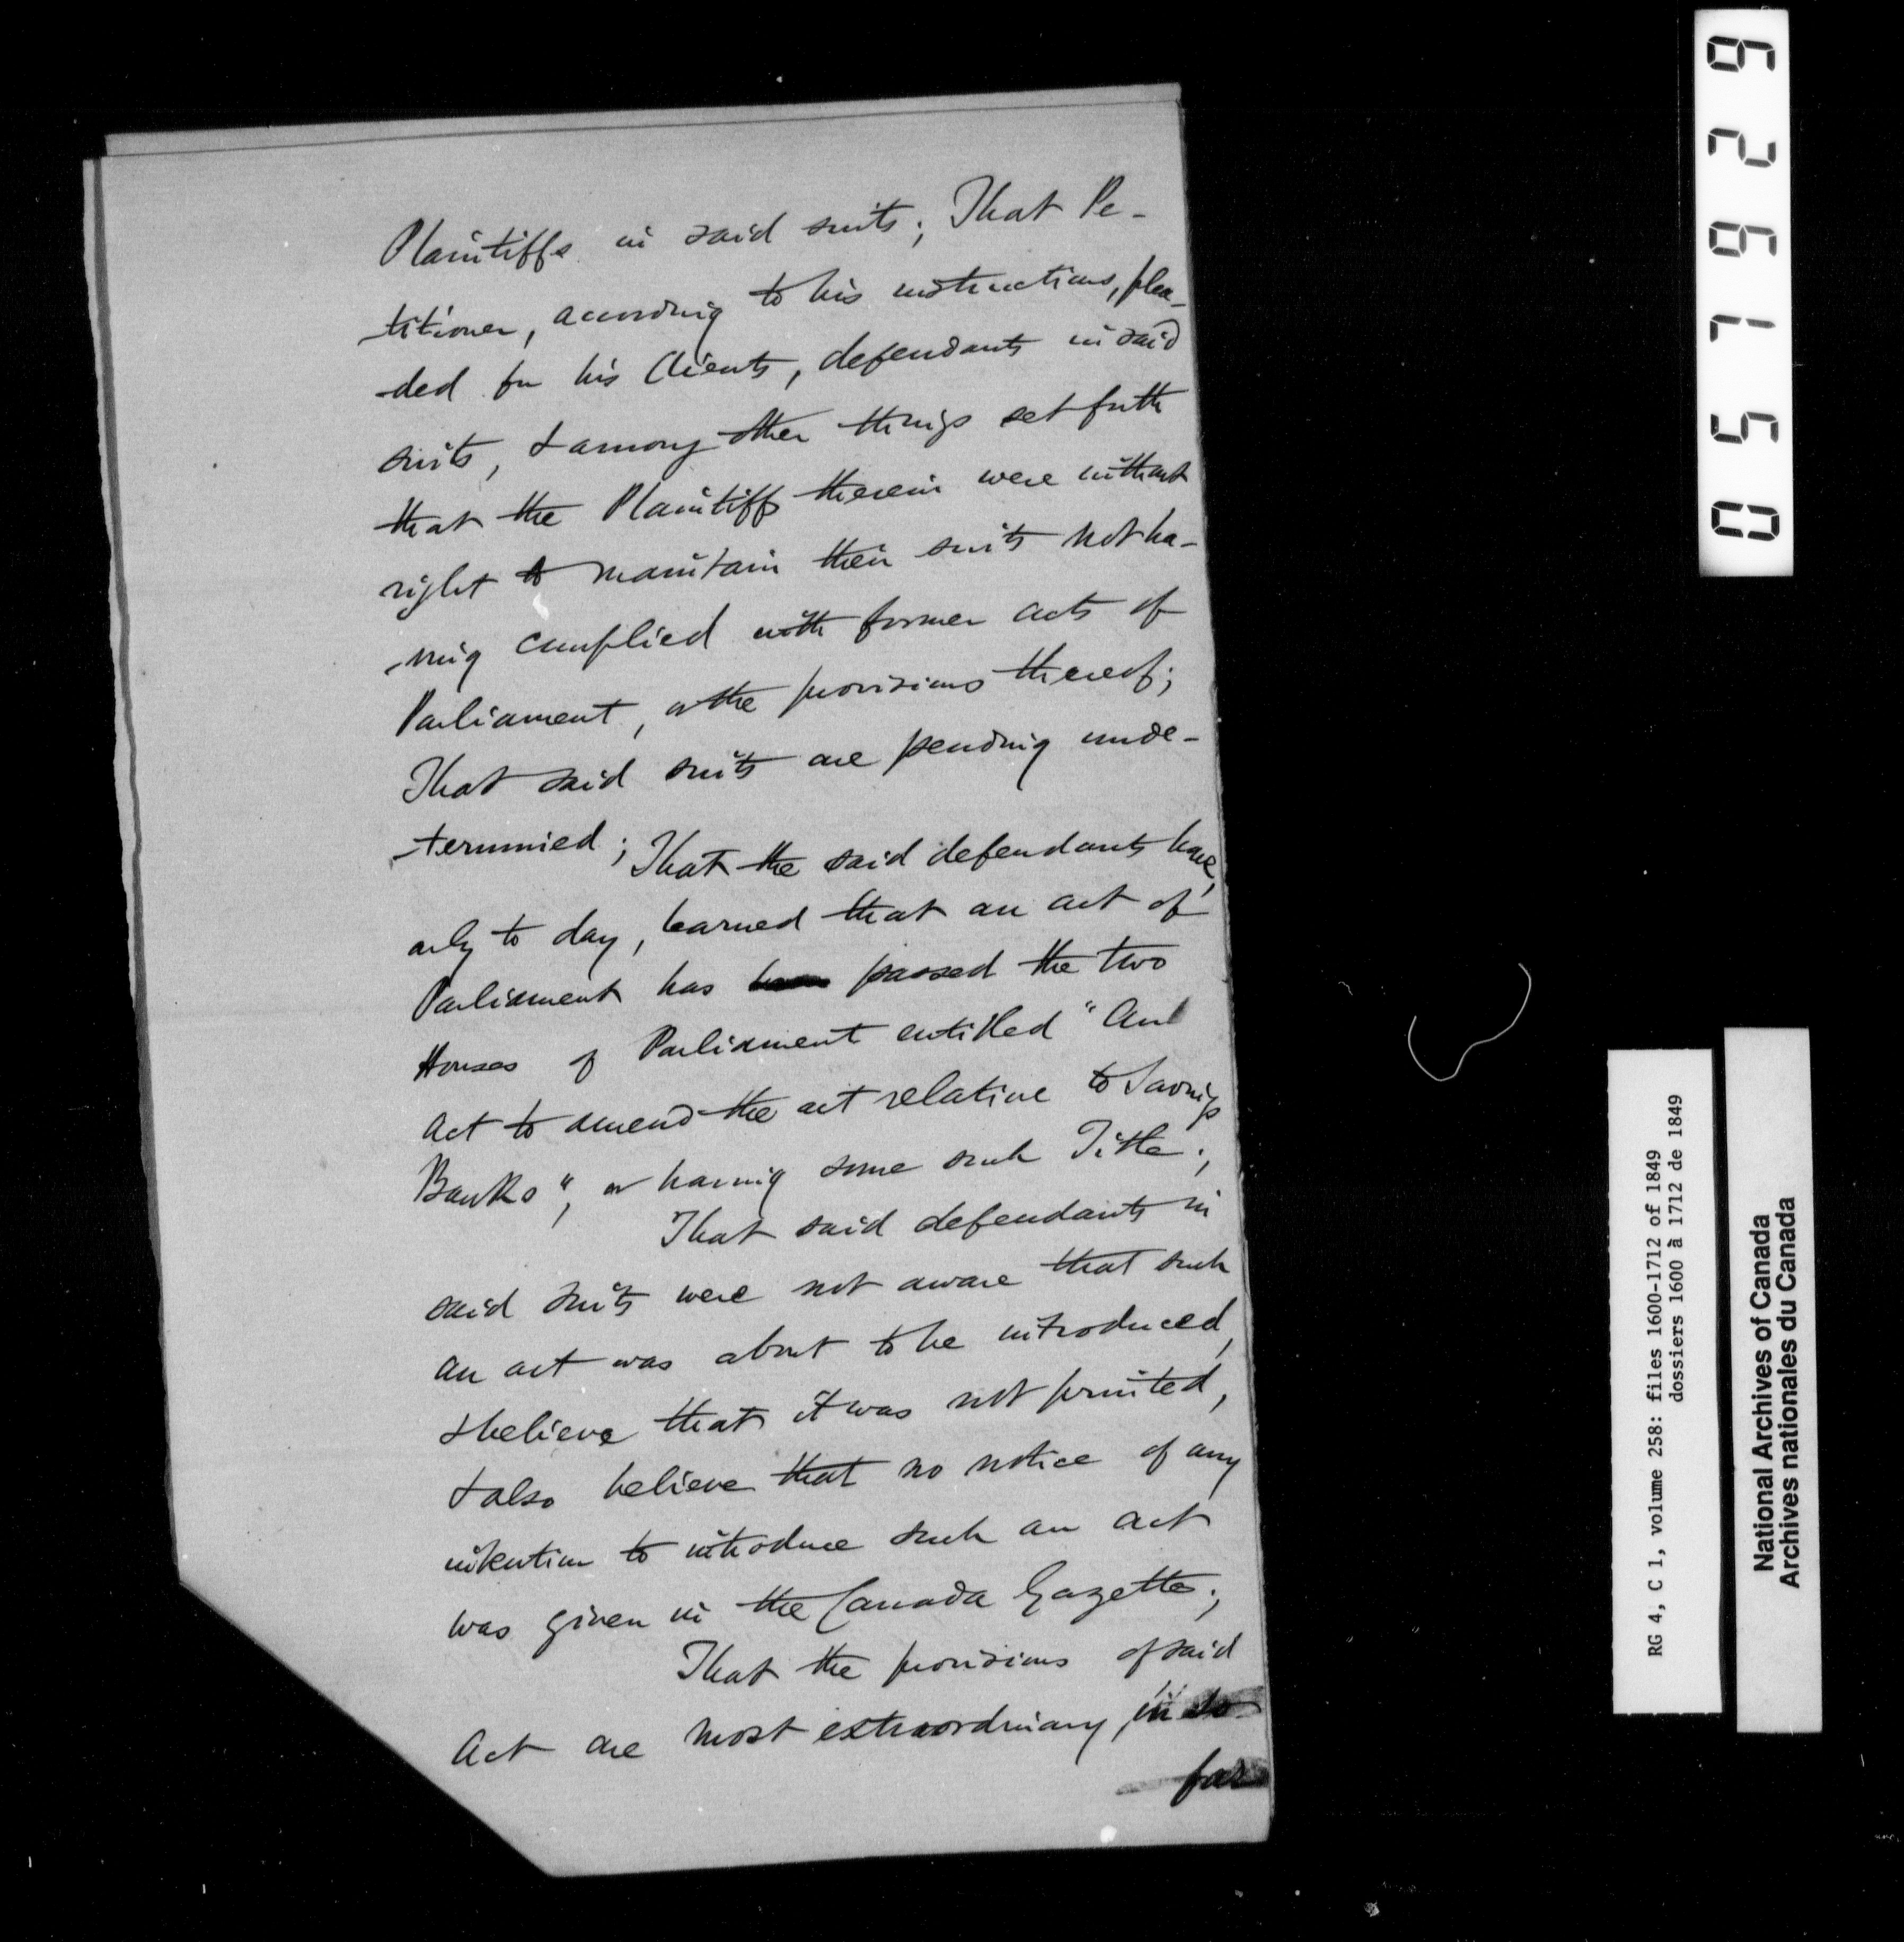 Plaintiffs in said suits; That Pe-
-titioner, according to his instructions, plea-
-ded for his Clients, defendants in said
suits, & among other things set forth
that the Plaintiffs therein were without
right to maintain their suits not ha-
-ving complied with former acts of
Parliament, or the provisions thereof;
That said suits are pending unde-
-termined; That the said defendants have,
only to day, learned that an act of
Parliament has passed the two
Houses of Parliament entitled "An
Act to amend the act relative to Savings
Banks", or having some such Title;
That said defendants in
said suits were not aware that such
an act was about to be introduced,
& believe that it was not printed,
& also believe that no notice of any
intention to introduce such an act
was given in the Canada Gazette;
That the provisions of said
Act are most extraordinary, in so
far
051629
RG 4, C 1, volume 258: files 1600-1712 of 1849
dossiers 1600 à 1712 de 1849
National Archives of Canada
Archives nationales du Canada